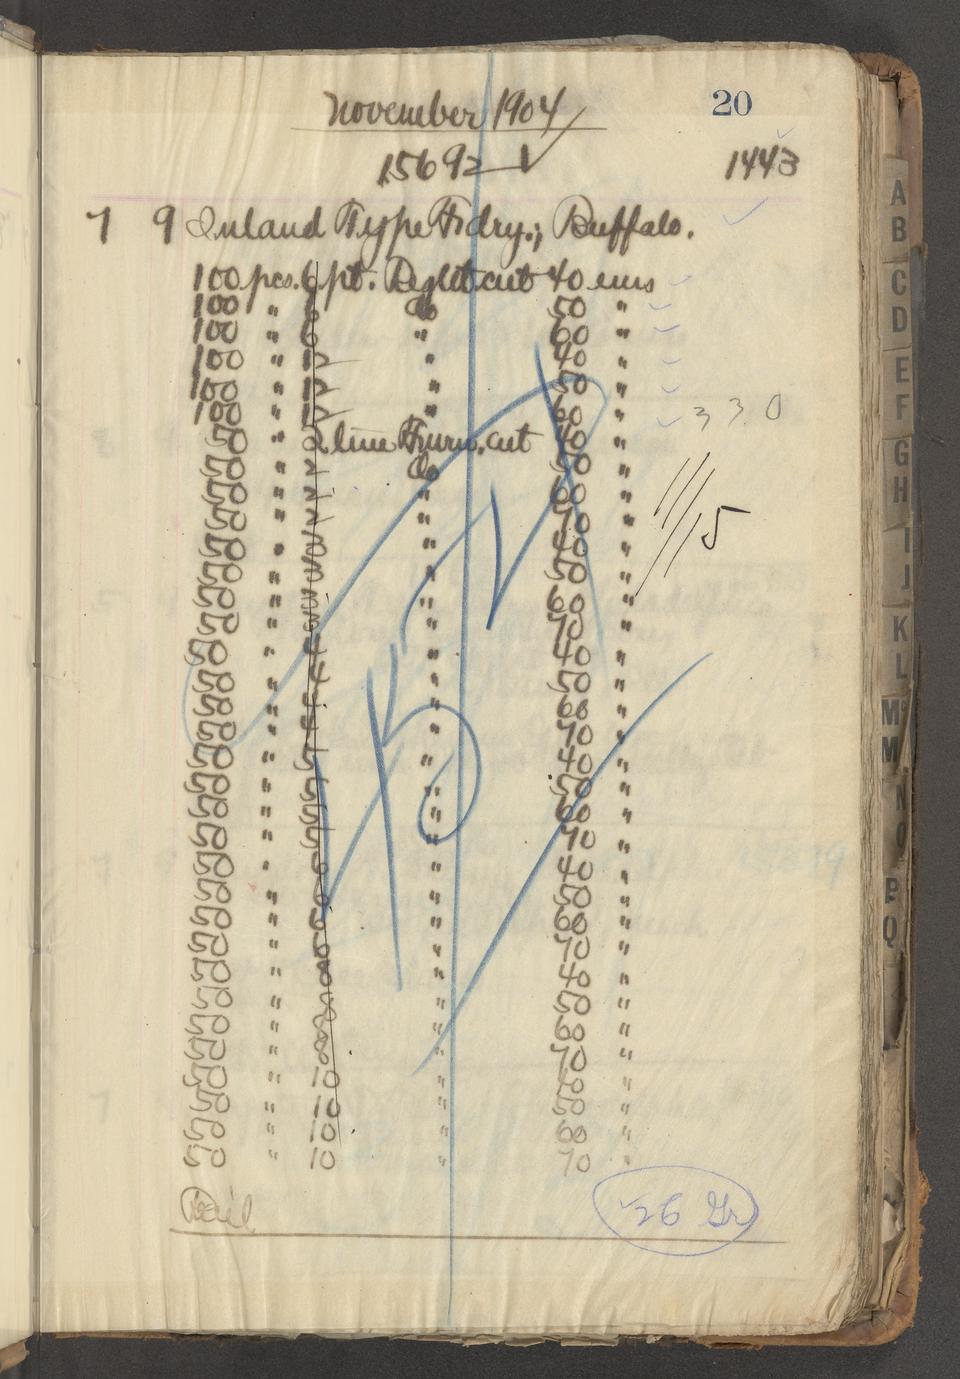 November 1904
20
15692 ✓
1443
7 9 Inland Type Fdry.; Buffalo.
100 pcs. 6 pt. Reglet cut 40 ems
100 " 6 do 50 "
100 " 6 " 60 "
100 " 12 " 40
100 " 12 " 50
100 " 12 " 60 330
50 " 2 line Furn. cut 40
50 " 2 do 50
50 " 2 " 60 "
50 " 2 " 70 " 15
50 " 3 " 40 "
50 " 3 " 50 "
50 " 3 " 60 "
50 " 3 " 70 "
50 " 4 " 40 "
50 " 4 " 50 "
50 " 4 " 60 "
50 " 4 " 70 "
50 " 5 " 40 "
50 " 5 " 50 "
50 " 5 " 60 "
50 " 5 " 70 "
50 " 6 " 40 "
50 " 6 " 50 "
50 " 6 " 60 "
50 " 6 " 70 "
50 " 8 " 40 "
50 " 8 " 50 "
50 " 8 " 60 "
50 " 8 " 70 "
50 " 10 " 40 "
50 " 10 " 50 "
50 " 10 " 60 "
50 " 10 " 70 "
Rail
26 Gr
A
B
C
D
E
F
G
H
I
J
K
L
Mc
M
N
O
P
Q